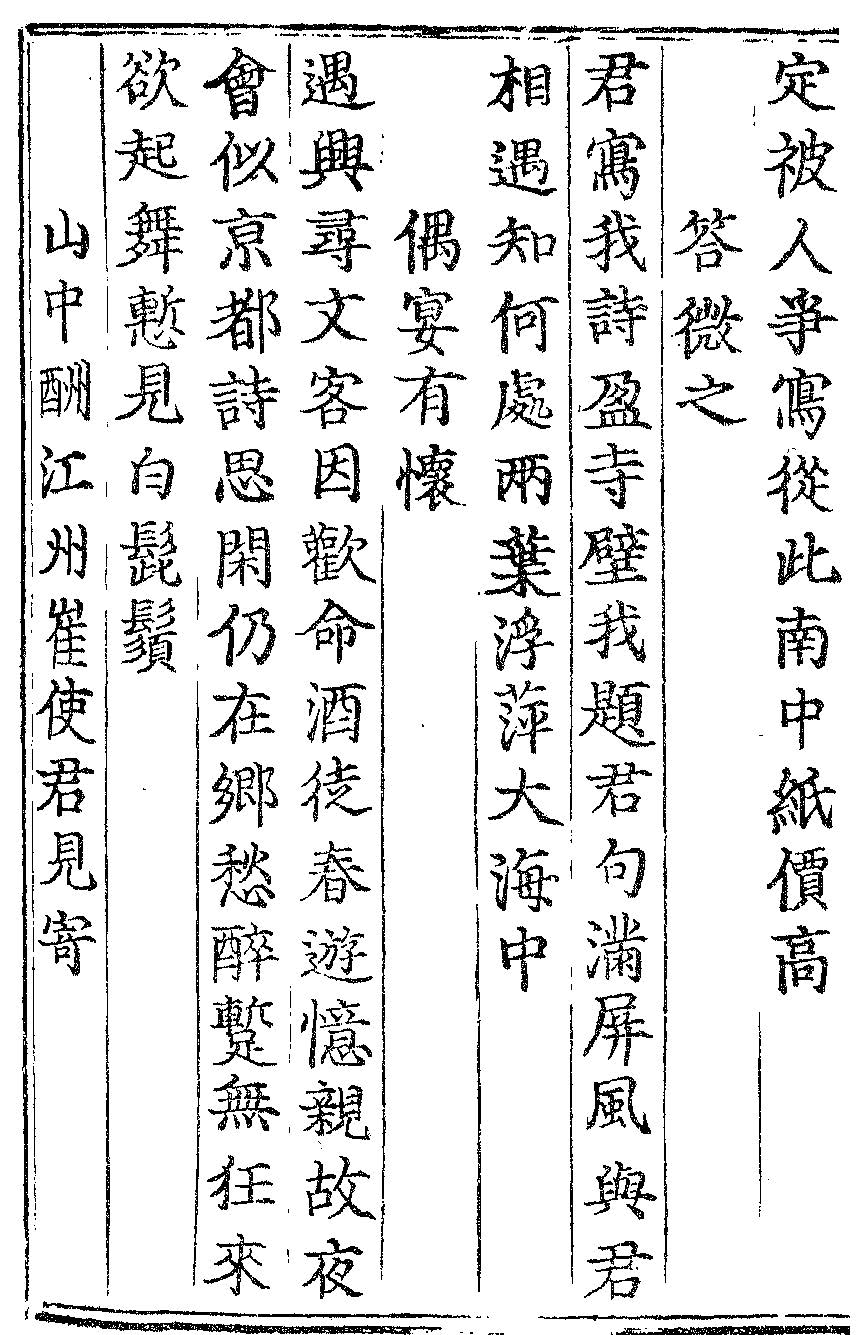 定被人爭寫從此南中紙價高
答微之
君寫我詩盈寺壁我題君句滿屏風與君
相遇知何處兩葉浮萍大海中
偶宴有懷
遇興尋文客因歡命酒徒春遊憶親故夜
會似京都詩思閑仍在鄉愁醉蹔無狂來
欲起舞慙見白髭鬚
山中酬江州崔使君見寄